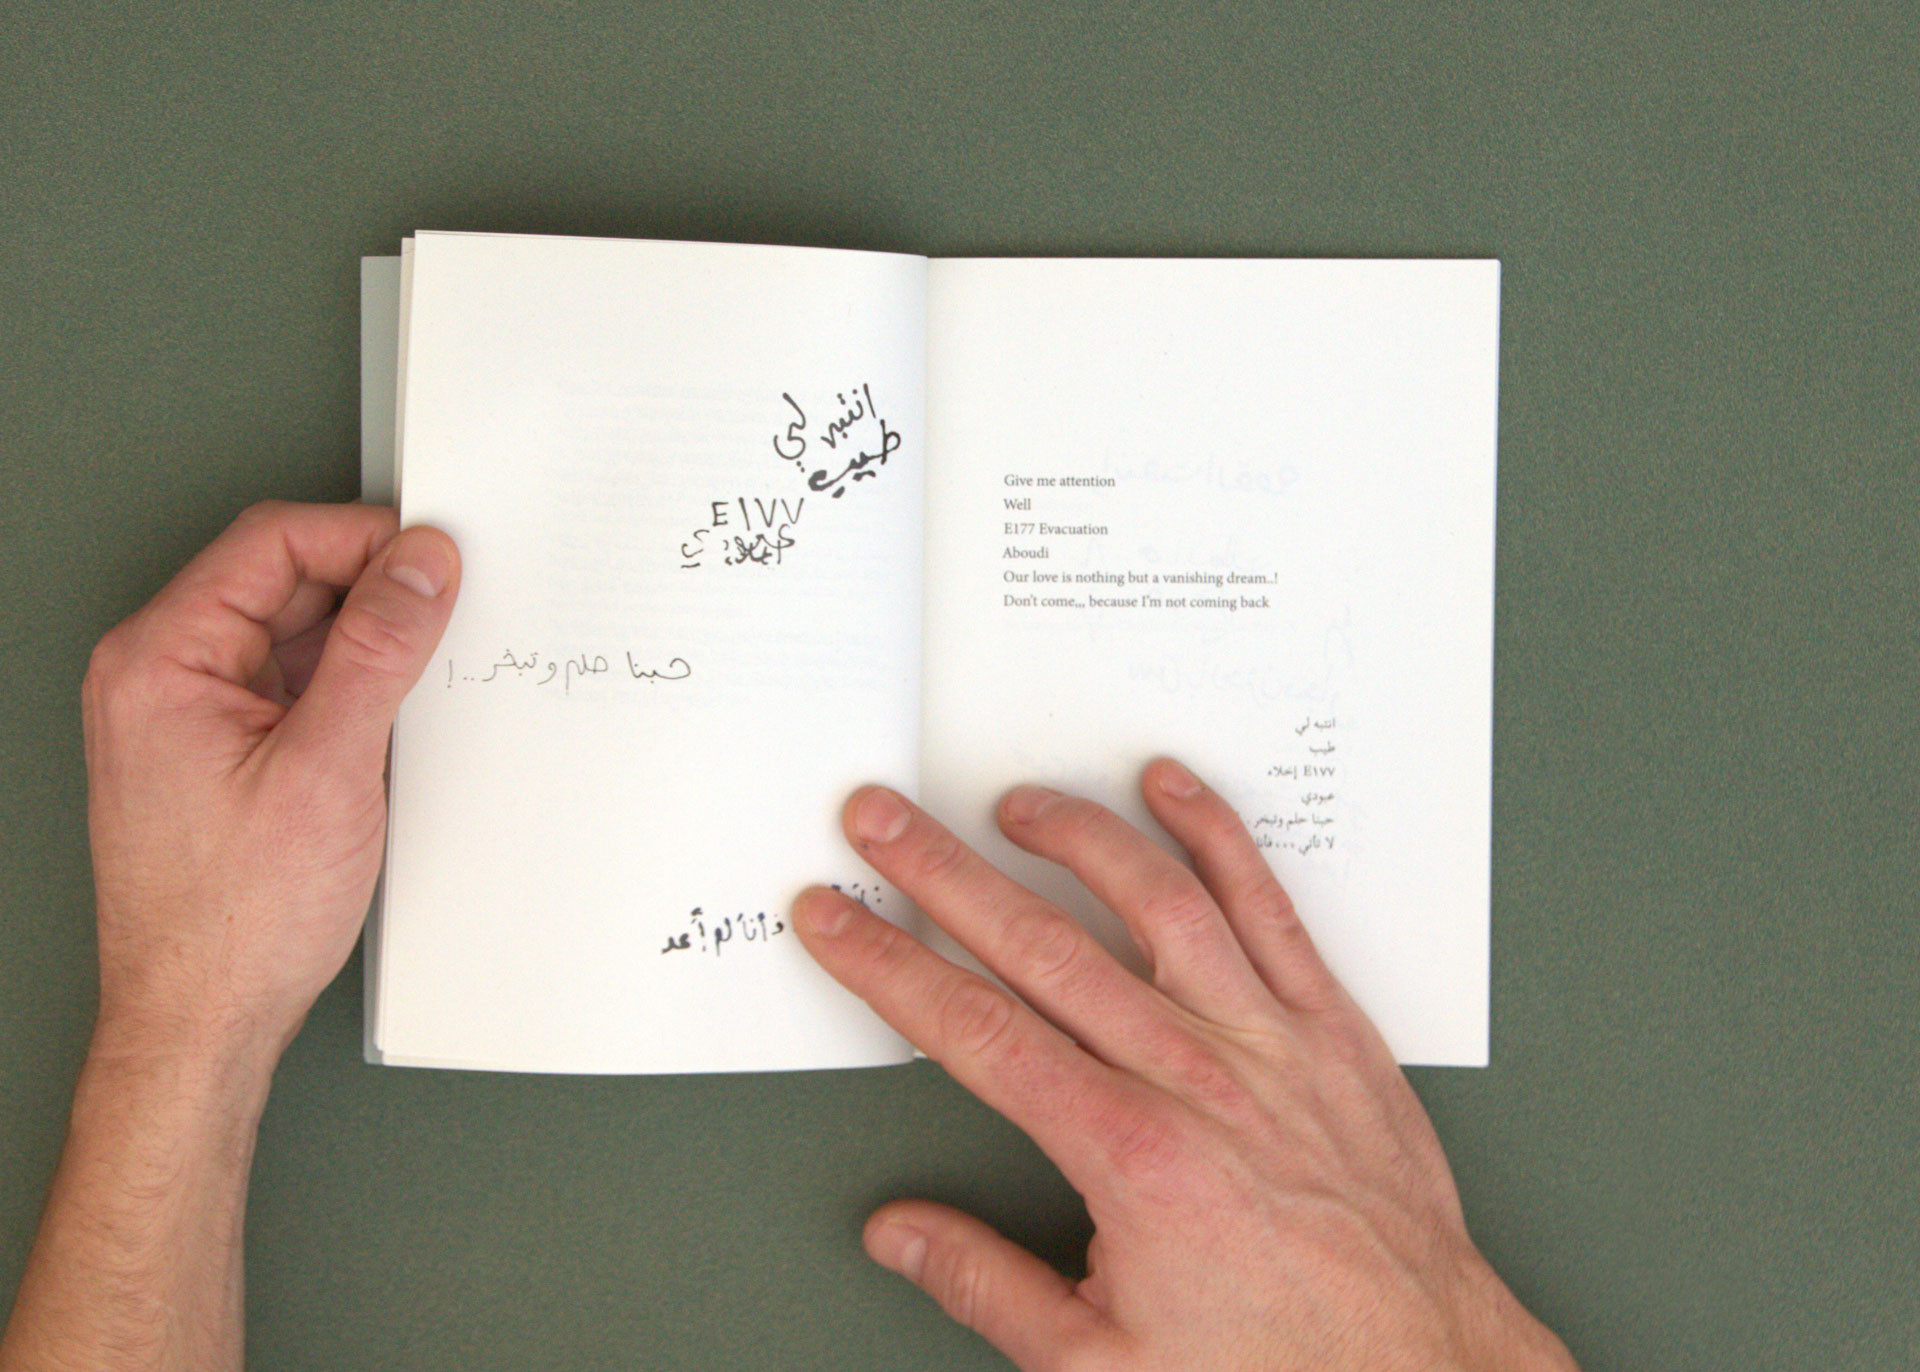 انتبه لي
طيب
E١٧٧
حبنا حلم وتبخر..!
فأنا لم أعد
Give me attention
Well
E177 Evacuation
Aboudi
Our love is nothing but a vanishing dream..!
Don't come,,, because I'm not coming back
انتبه لي
طيب
E١٧٧ إخلاء
عبودي
حبنا حلم وتبخر .
لا تأتي ،،، فأنا